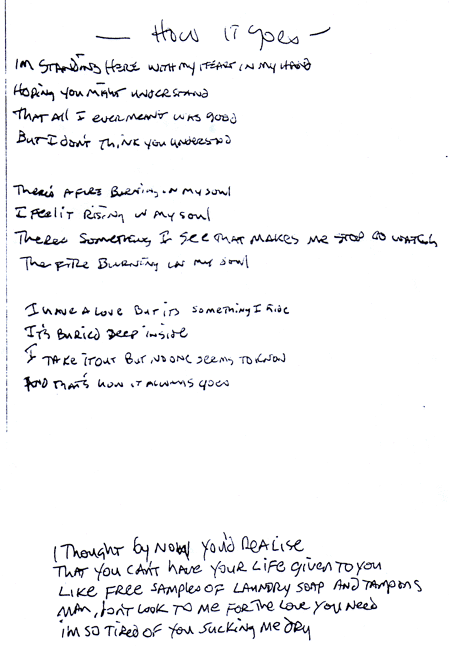 — How IT goes —
I'M STANDING HERE WITH MY HEART IN MY HAND
HOPING YOU MIGHT UNDERSTAND
THAT All I EVER MEANT WAS GOOD
BUT I DON'T THINK YOU UNDERSTOOD
There's A FIRE BURNING IN MY SOUl
I FEEl IT RISING IN MY SOUl
THERES SOMETHING I SEE THAT MAKES ME STOP
THE FIRE BURNING IN MY SOUl
I HAVE A LOVE BUT IT'S SOMETHING I HIDE
IT'S BURIED DEEP INSIDE
I TAKE IT OUT BUT NO ONE SEEMS TO KNOW
AND THAT'S HOW IT ALWAYS GOES
I Thought by NOW YOU'D REALISE
THAT YOU CAN'T HAVE YOUR LIFE GIVEN TO YOU
LIKE FREE SAMPLES OF LAUNDRY SOAP AND TAMPONS
MAN, DON'T LOOK TO ME FOR THE LOVE YOU NEED
I'M SO TIRED OF YOU SUCKING ME DRY